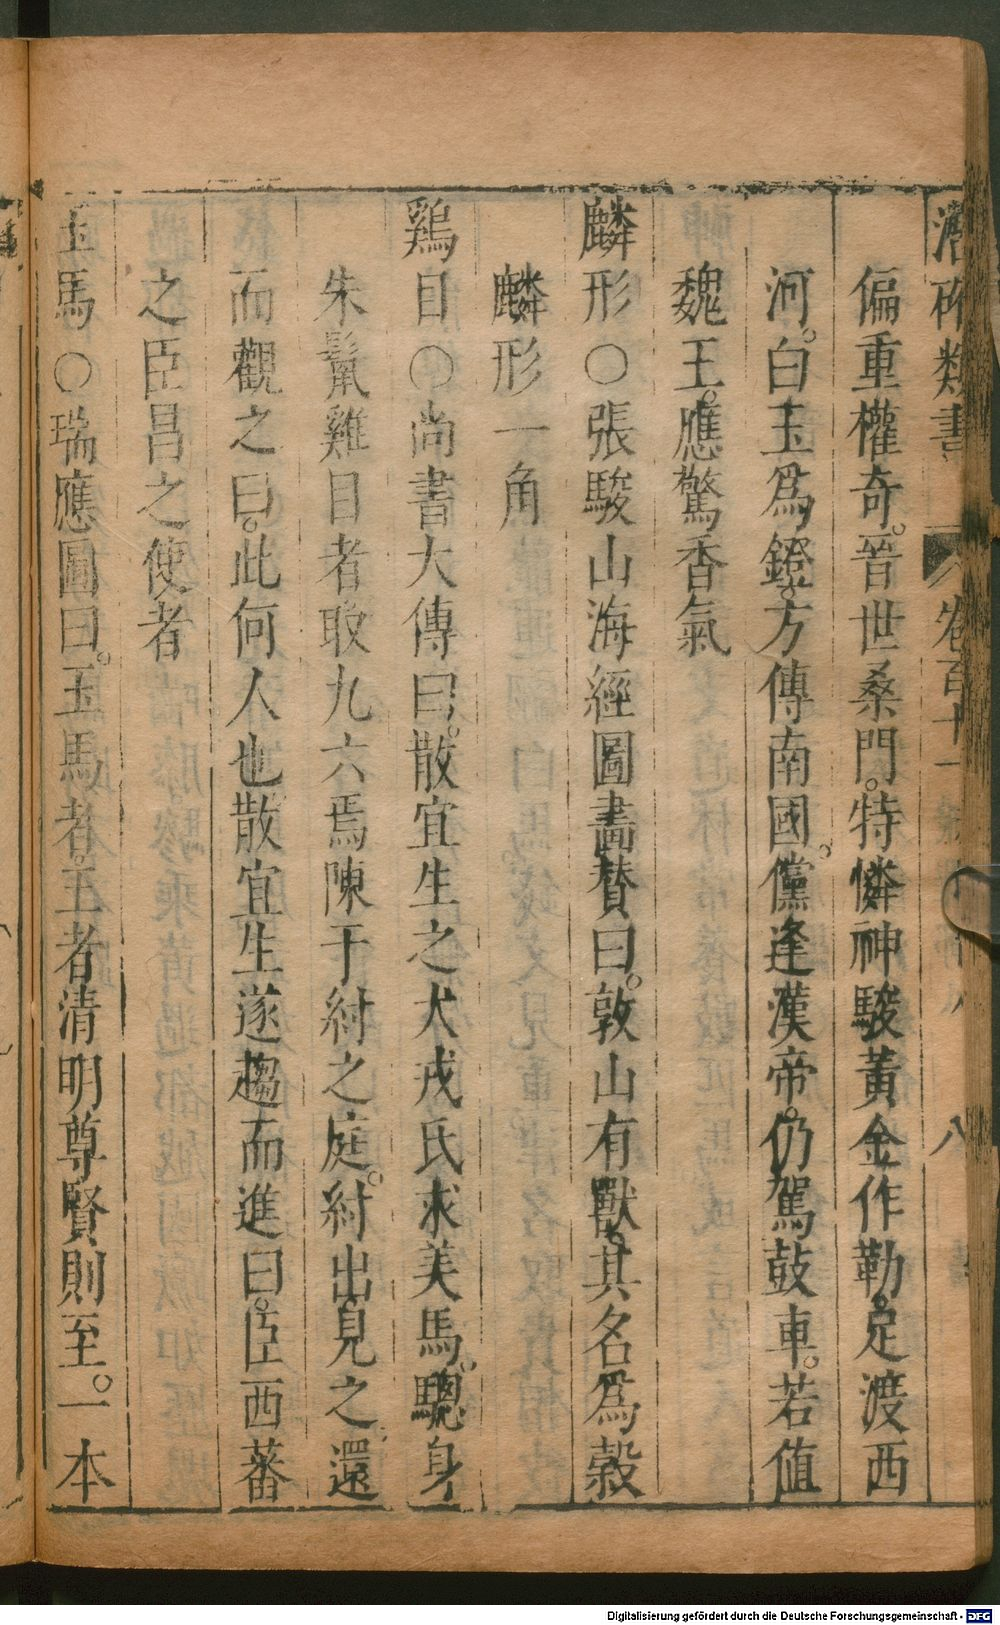 潛确類書 卷百十一 八
偏重權奇。晉世桑門。特憐神駿黃金作勒。足渡西
河。白玉爲鐙。方傳南國。儻逢漢帝。仍駕鼓車。若値
魏王。應驚香氣
麟形○張駿山海經圖畫賛曰。敦山有獸。其名爲㺉
麟形一角
鷄目○尚書大傳曰。散宜生之犬戎氏求美馬。驄身
朱鬣雞目者取九六焉陳于紂之庭。紂出見之還
而觀之曰。此何人也散宜生遂趨而進曰。臣西蕃
之臣昌之使者
玉馬○瑞應圖曰。玉馬者。王者清明尊賢則至。一本
Digitalisierung gefördert durch die Deutsche Forschungsgemeinschaft - DFG